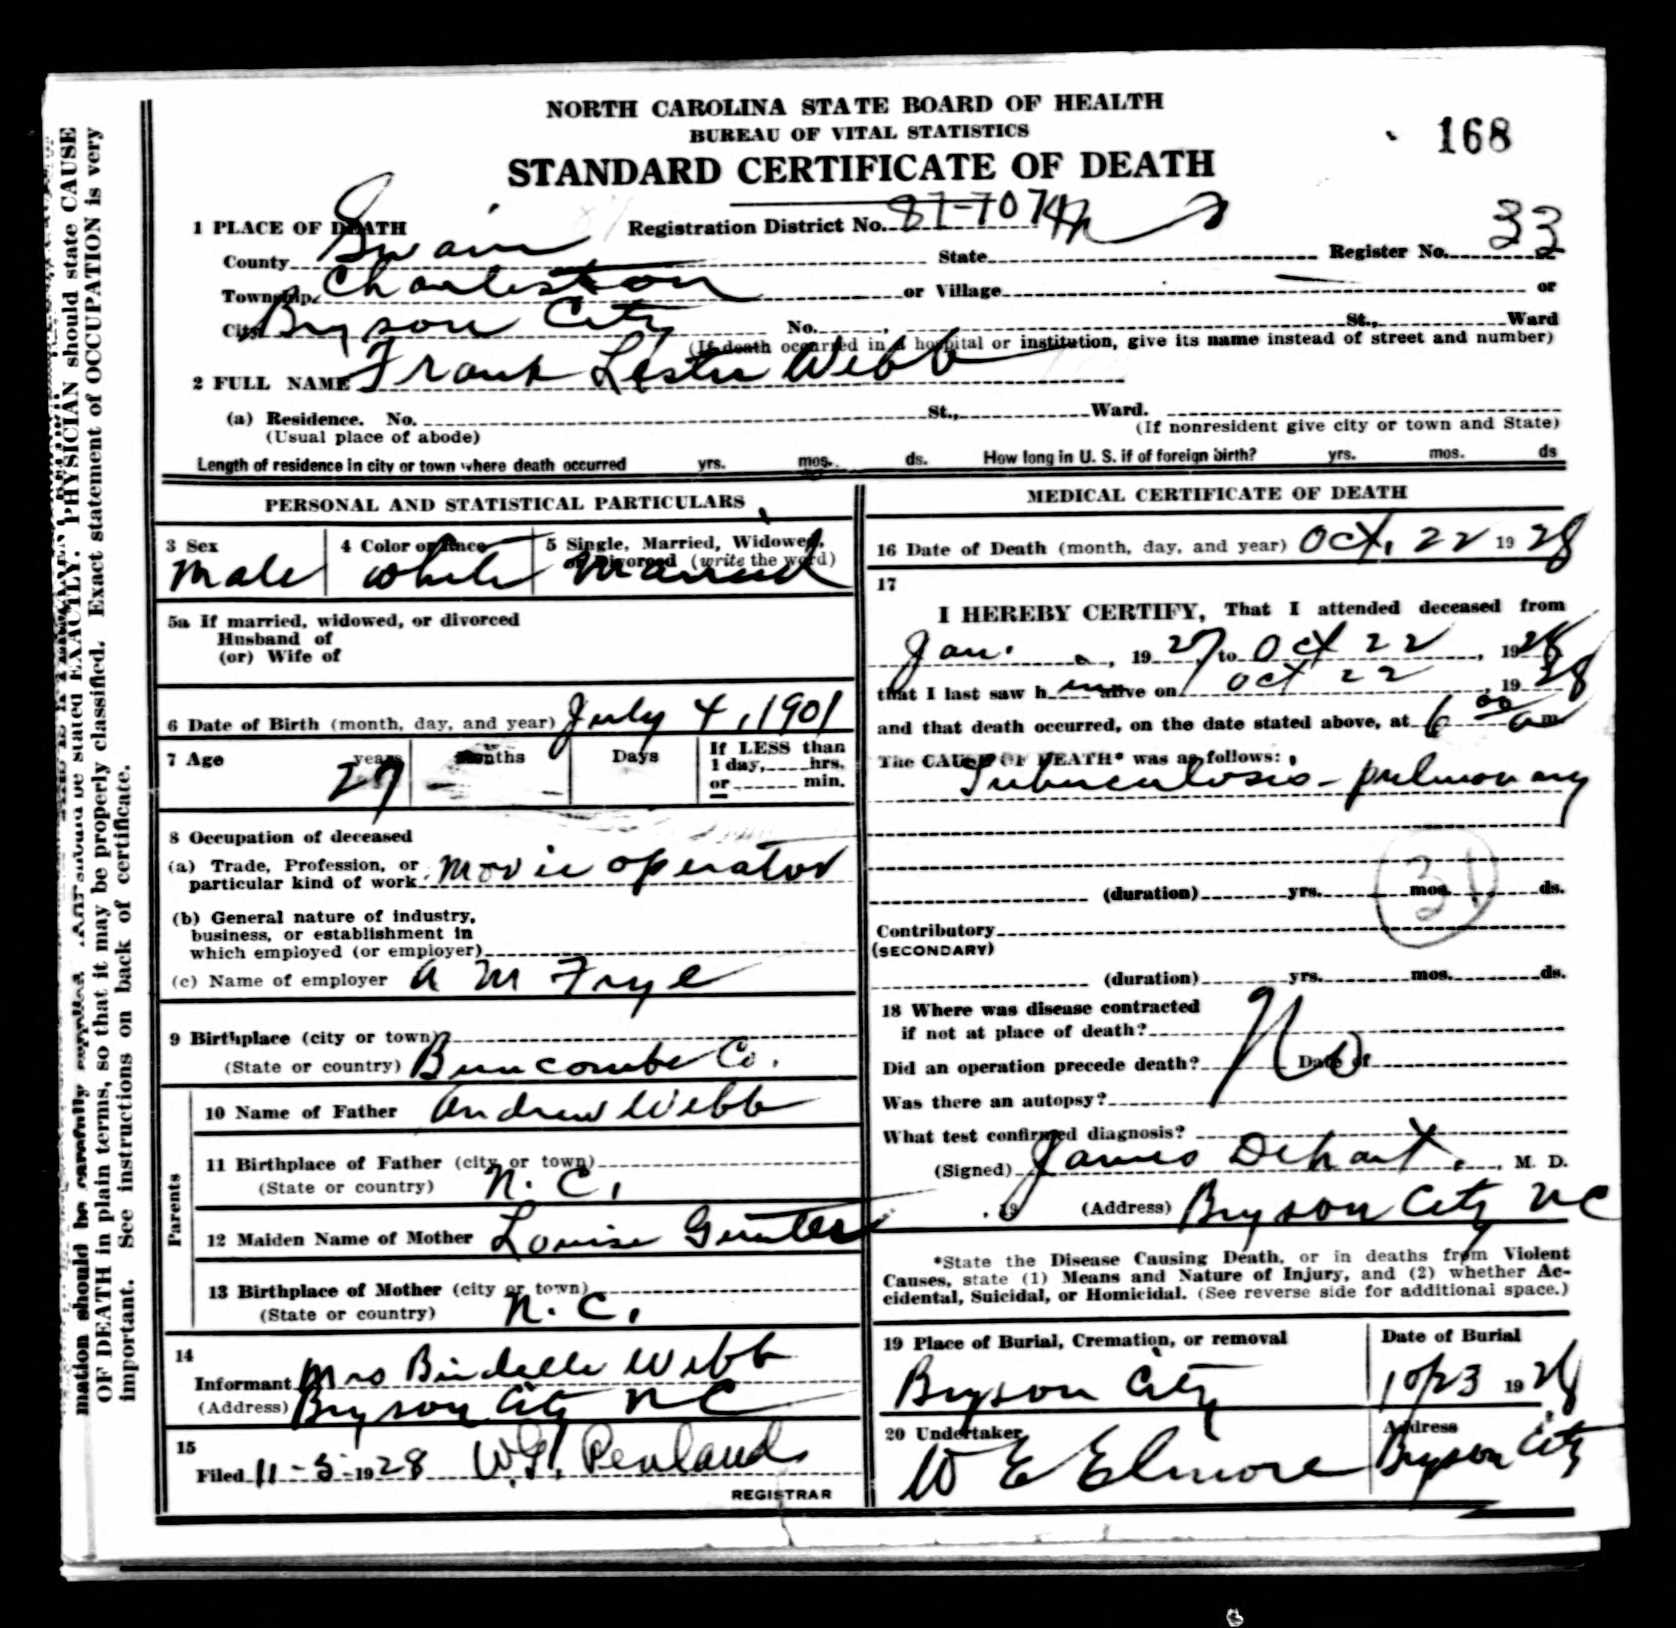 NORTH CAROLINA STATE BOARD OF HEALTH
BUREAU OF VITAL STATISTICS
STANDARD CERTIFICATE OF DEATH
168
1 PLACE OF DEATH
Registration District No. 87-7074
Register No. 33
County Swain State
Township Charleston or Village or
City Bryson City No. St., Ward
(If death occurred in a hospital or institution, give its name instead of street and number)
2 FULL NAME Frank Lester Webb
(a) Residence. No. St., Ward.
(Usual place of abode) (If nonresident give city or town and State)
Length of residence in city or town where death occurred yrs. mos. ds. How long in U. S. if of foreign birth? yrs. mos. ds
PERSONAL AND STATISTICAL PARTICULARS
3 Sex
Male
4 Color or Race
White
5 Single, Married, Widowed,
or Divorced (write the word)
Married
5a If married, widowed, or divorced
Husband of
(or) Wife of
6 Date of Birth (month, day, and year) July 4, 1901
7 Age years Months Days If LESS than
1 day, hrs.
or min.
27
8 Occupation of deceased
(a) Trade, Profession, or
particular kind of work Movie operator
(b) General nature of industry,
business, or establishment in
which employed (or employer)
(c) Name of employer A M Frye
9 Birthplace (city or town)
(State or country) Buncombe Co.
Parents
10 Name of Father Andrew Webb
11 Birthplace of Father (city or town)
(State or country) N. C.
12 Maiden Name of Mother Louise Gunter
13 Birthplace of Mother (city or town)
(State or country) N. C.
14
Informant Mrs Birdelle Webb
(Address) Bryson City NC
15
Filed 11-5-1928 W.G. Penland
REGISTRAR
MEDICAL CERTIFICATE OF DEATH
16 Date of Death (month, day, and year) Oct. 22 1928
17
I HEREBY CERTIFY, That I attended deceased from
Jan. , 1927, to Oct 22, 1928
that I last saw him alive on Oct 22, 1928
and that death occurred, on the date stated above, at 6 00 am
The CAUSE OF DEATH* was as follows:
Tuberculosis - pulmonary
31
(duration) yrs. mos. ds.
Contributory
(SECONDARY)
(duration) yrs. mos. ds.
18 Where was disease contracted
if not at place of death?
Did an operation precede death? No Date of
Was there an autopsy?
What test confirmed diagnosis?
(Signed) James Dehart, M. D.
, 19 (Address) Bryson City NC
*State the Disease Causing Death, or in deaths from Violent
Causes, state (1) Means and Nature of Injury, and (2) whether Ac-
cidental, Suicidal, or Homicidal. (See reverse side for additional space.)
19 Place of Burial, Cremation, or removal
Bryson City
Date of Burial
10/23 1928
20 Undertaker
W E Elmore
Address
Bryson City
mation should be carefully supplied. AGE should be stated EXACTLY. PHYSICIAN should state CAUSE
OF DEATH in plain terms, so that it may be properly classified. Exact statement of OCCUPATION is very
important. See instructions on back of certificate.